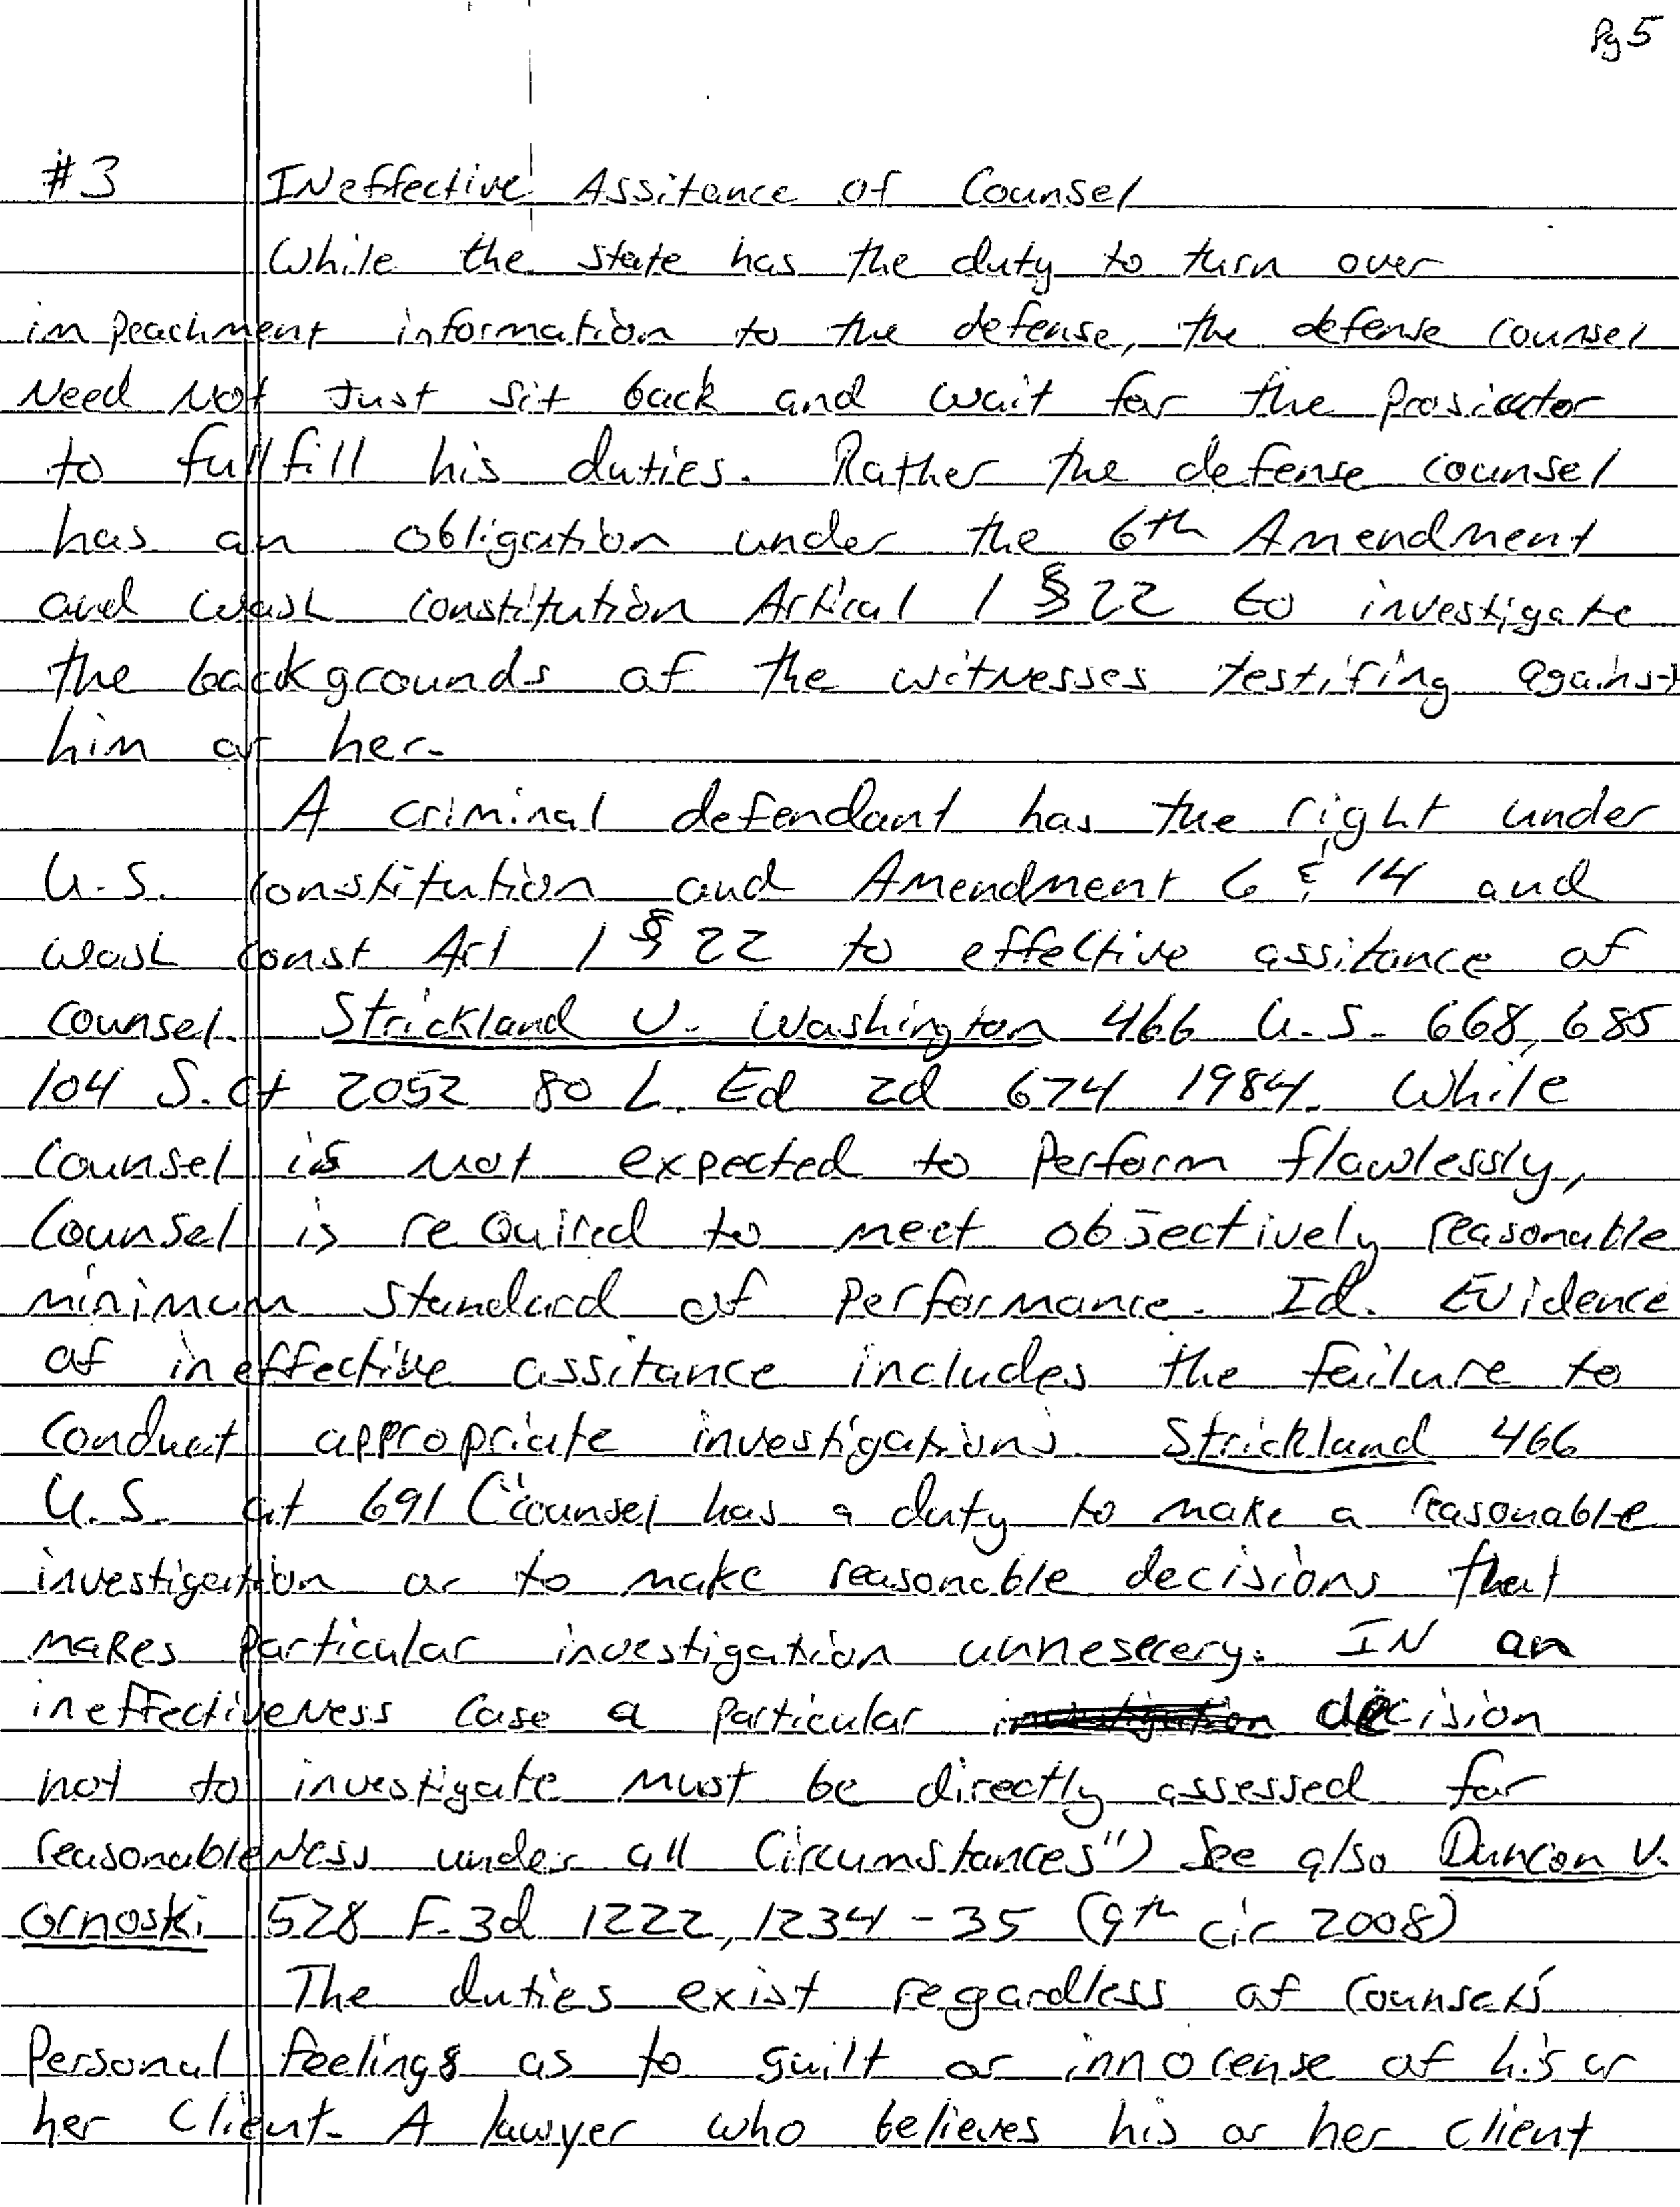 Pg 5
#3 INeffective Assitance of Counsel
While the state has the duty to turn over
impeachment information to the defense, the defense counsel
Need Not Just sit back and wait for the prosicutor
to fullfill his duties. Rather the defense counsel
has an obligation under the 6th Amendment
and Wash constitution Artical 1 § 22 to investigate
the backgrounds of the witnesses testifing against
him or her.
A criminal defendant has the right under
U.S. Constitution and Amendment 6 & 14 and
Wash Const Art 1 § 22 to effective assitance of
Counsel. Strickland v. Washington 466 U.S. 668, 685
104 S.ct 2052 80 L. Ed 2d 674 1984. While
Counsel is Not expected to Perform flawlessly,
Counsel is reQuired to meet obJectively reasonable
minimum standard of Performance. Id. Evidence
of ineffective assitance includes the failure to
Conduct appropriate investigations. Strickland 466
U.S. at 691 ("counsel has a duty to make a reasonable
investigation or to make reasonable decisions that
makes particular investigation unnesecery. IN an
ineffectiveNess case a particular decision
not to investigate must be directly assessed for
reasonableNess under all Circumstances") See also Duncan v.
Ornoski 528 F.3d 1222, 1234-35 (9th cir 2008)
The duties exist regardless of Counsels'
Personal feelings as to guilt or innocense of his or
her Client. A lawyer who believes his or her client